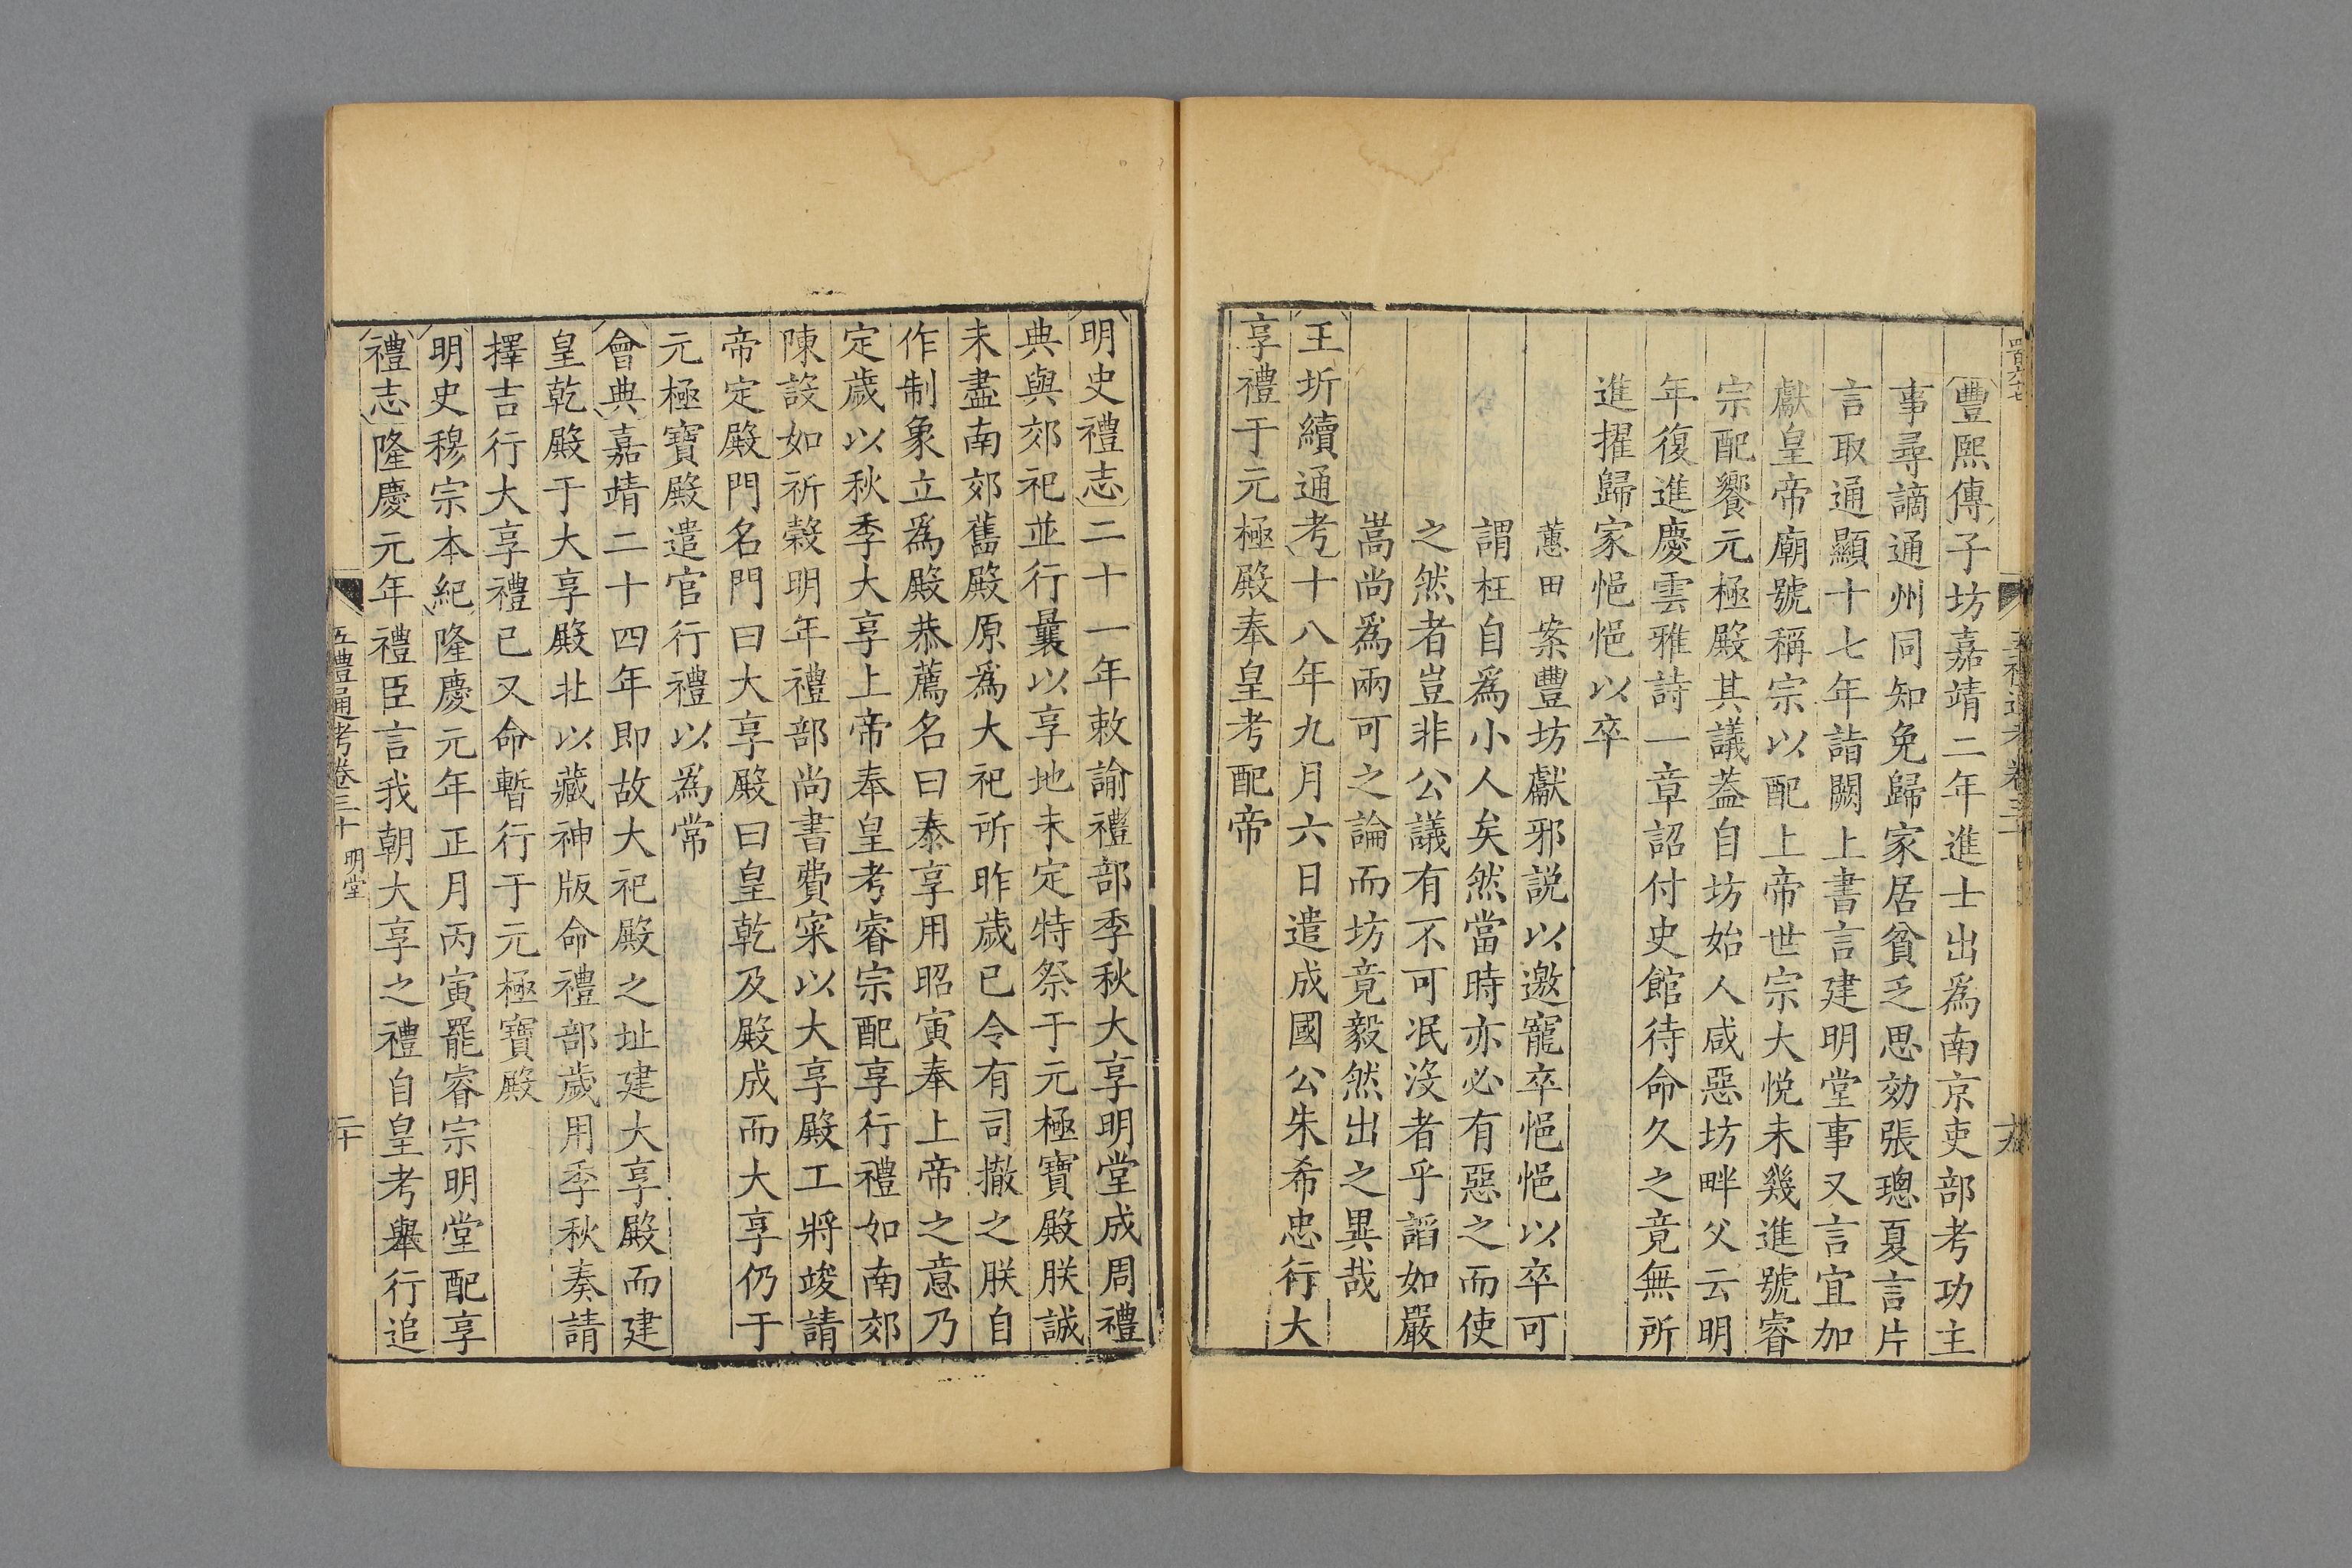 豐熙傳子坊嘉靖二年進士出爲南京吏部考功主
事尋謫通州同知免歸家居貧乏思効張璁夏言片
言取通顯十七年詣闕上書言建明堂事又言宜加
獻皇帝廟號稱宗以配上帝世宗大悅未幾進號睿
宗配饗元極殿其議蓋自坊始人咸惡坊畔父云明
年復進慶雲雅詩一章詔付史館待命久之竟無所
進擢歸家悒悒以卒
蕙田案豐坊獻邪説以邀寵卒悒悒以卒可
謂枉自爲小人矣然當時亦必有惡之而使
之然者豈非公議有不可冺沒者乎謟如嚴
嵩尚爲兩可之論而坊竟毅然出之異哉
王圻續通考十八年九月六日遣成國公朱希忠行大
享禮于元極殿奉皇考配帝
明史禮志二十一年敕諭禮部季秋大享明堂成周禮
典與郊祀並行曩以享地未定特祭于元極寶殿朕誠
未盡南郊舊殿原爲大祀所昨歲已令有司撤之朕自
作制象立爲殿恭薦名曰泰享用昭寅奉上帝之意乃
定歲以秋季大享上帝奉皇考睿宗配享行禮如南郊
陳設如祈穀明年禮部尚書費寀以大享殿工將竣請
帝定殿門名門曰大享殿曰皇乾及殿成而大享仍于
元極寶殿遣官行禮以爲常
會典嘉靖二十四年即故大祀殿之址建大享殿而建
皇乾殿于大享殿北以藏神版命禮部歲用季秋奏請
擇吉行大享禮已又命暫行于元極寶殿
明史穆宗本紀隆慶元年正月丙寅罷睿宗明堂配享
禮志隆慶元年禮臣言我朝大享之禮自皇考舉行追
五禮通考卷三十 明堂 二十